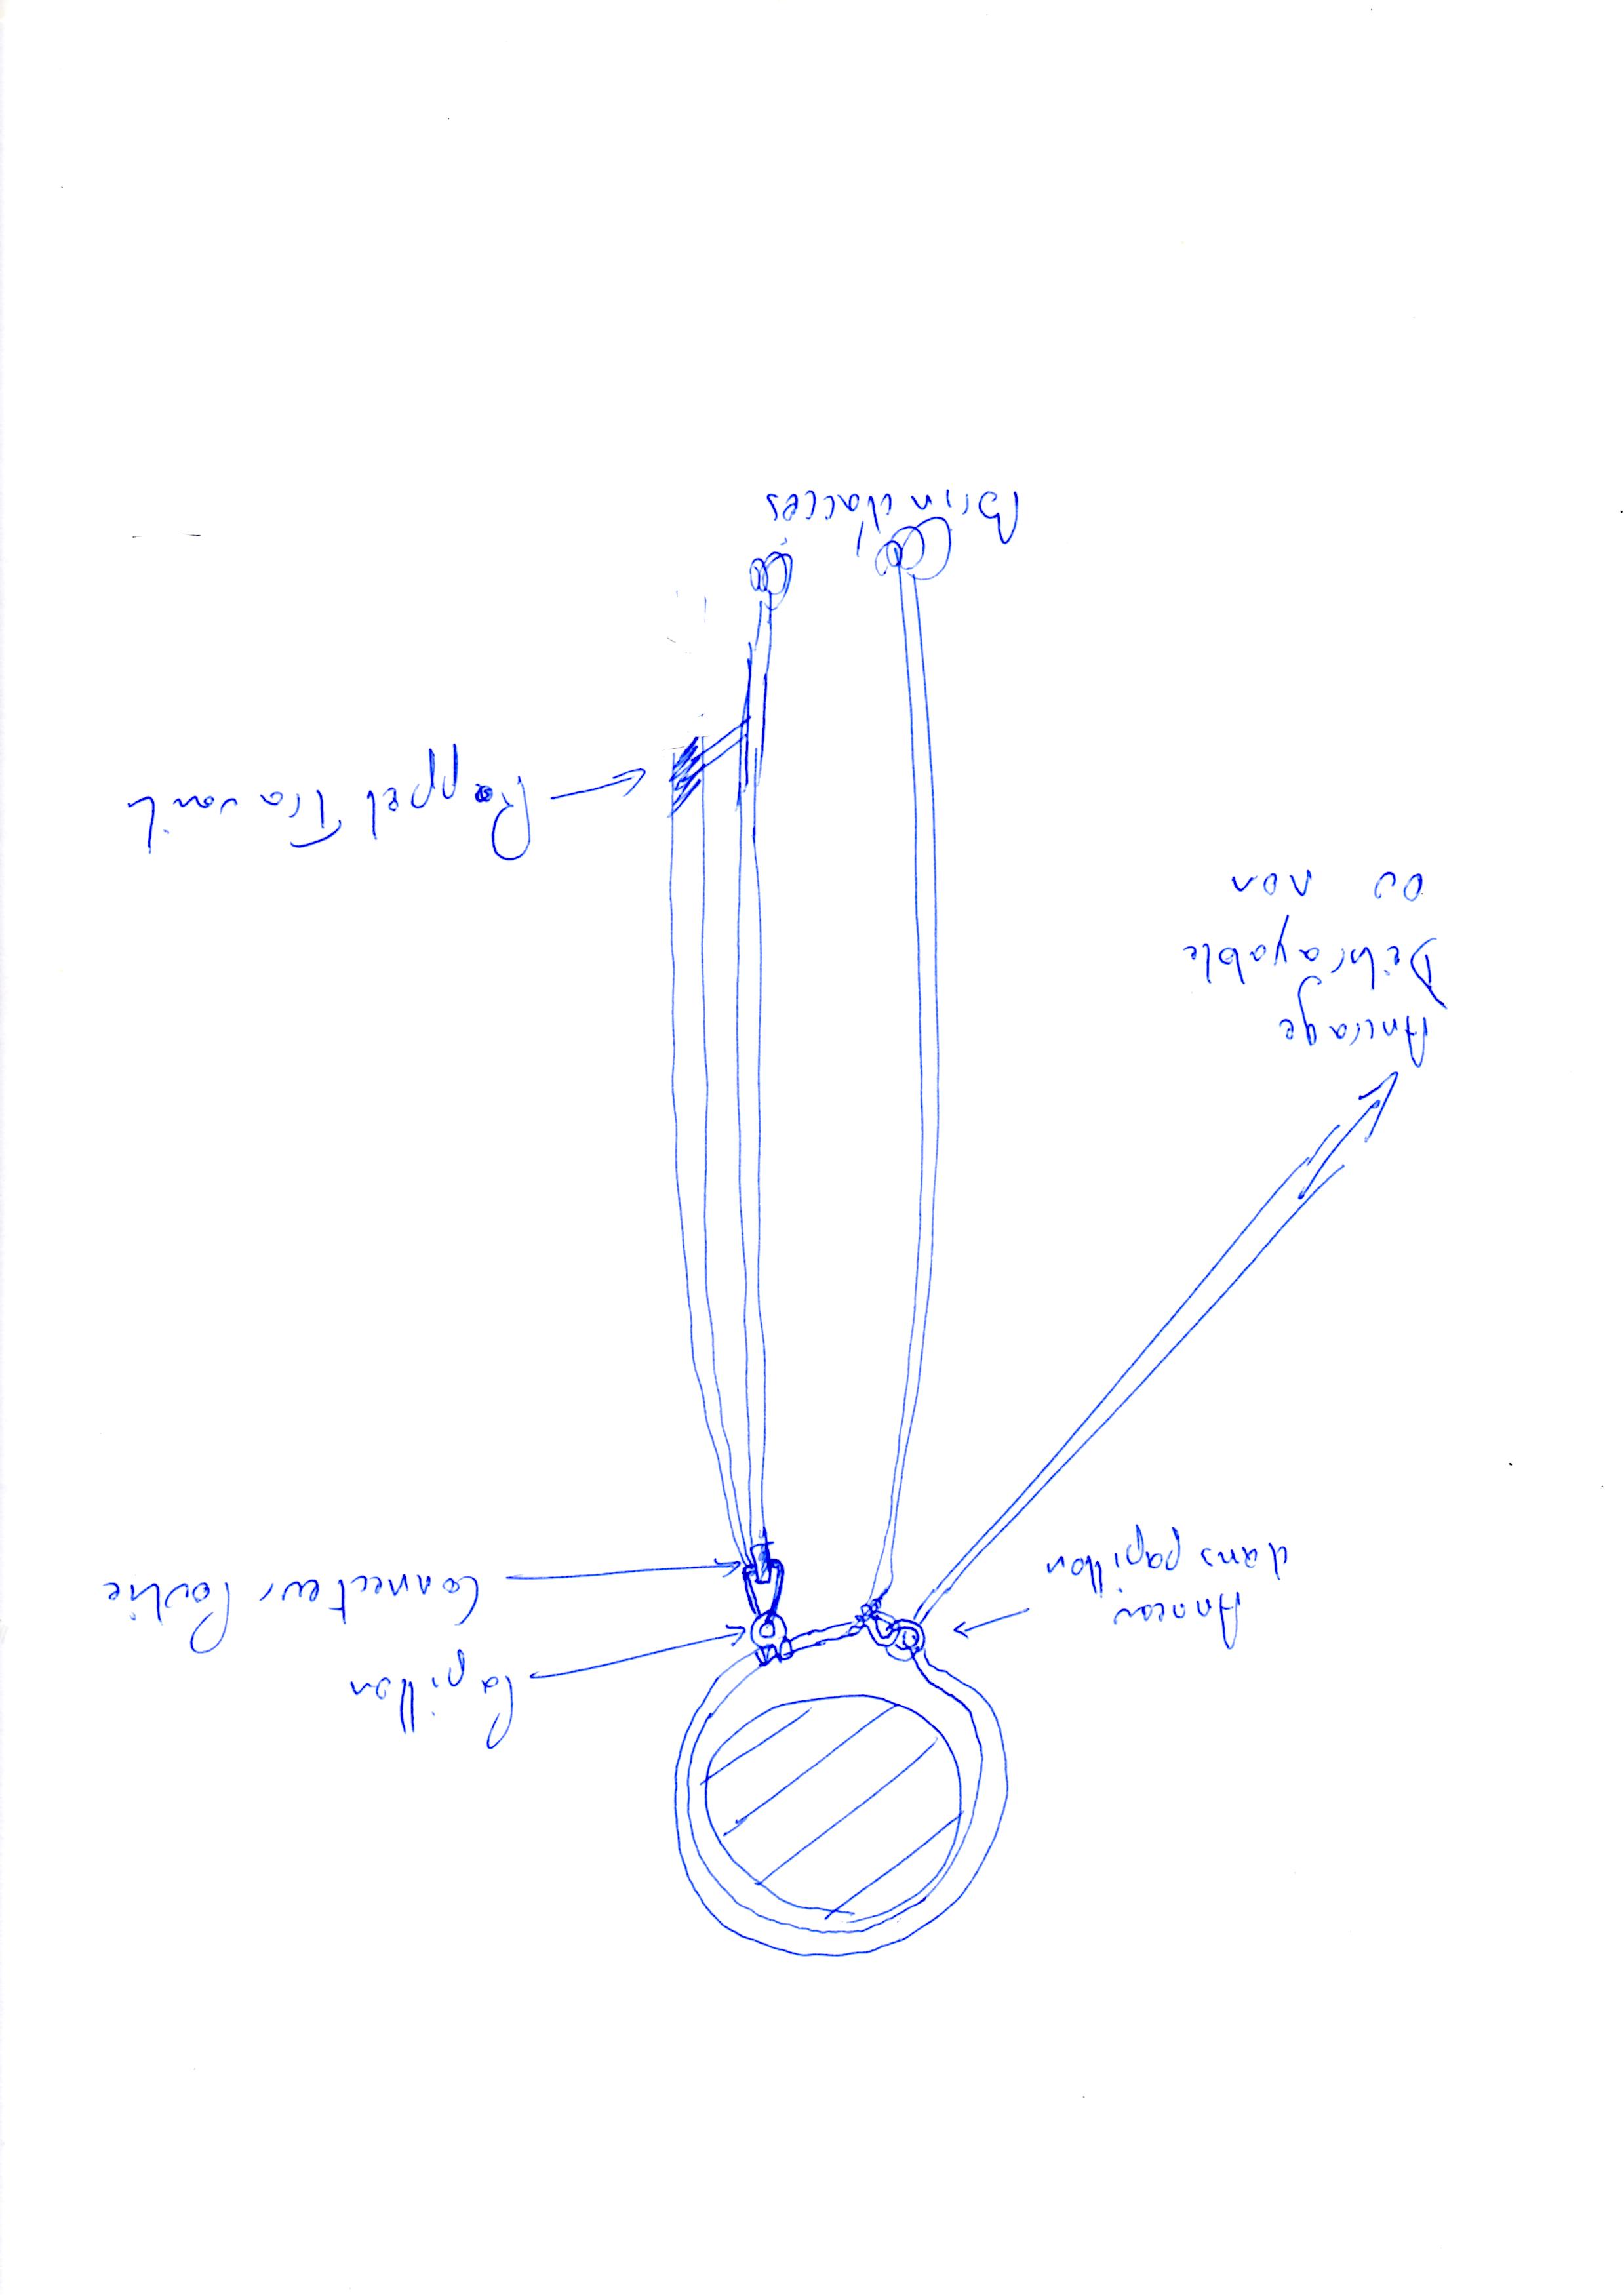 Papillon
Anneau
dans papillon
Connecteur Poulie
Ancrage
Débrayable
ou non
Rappel Travail
Brin d'acces